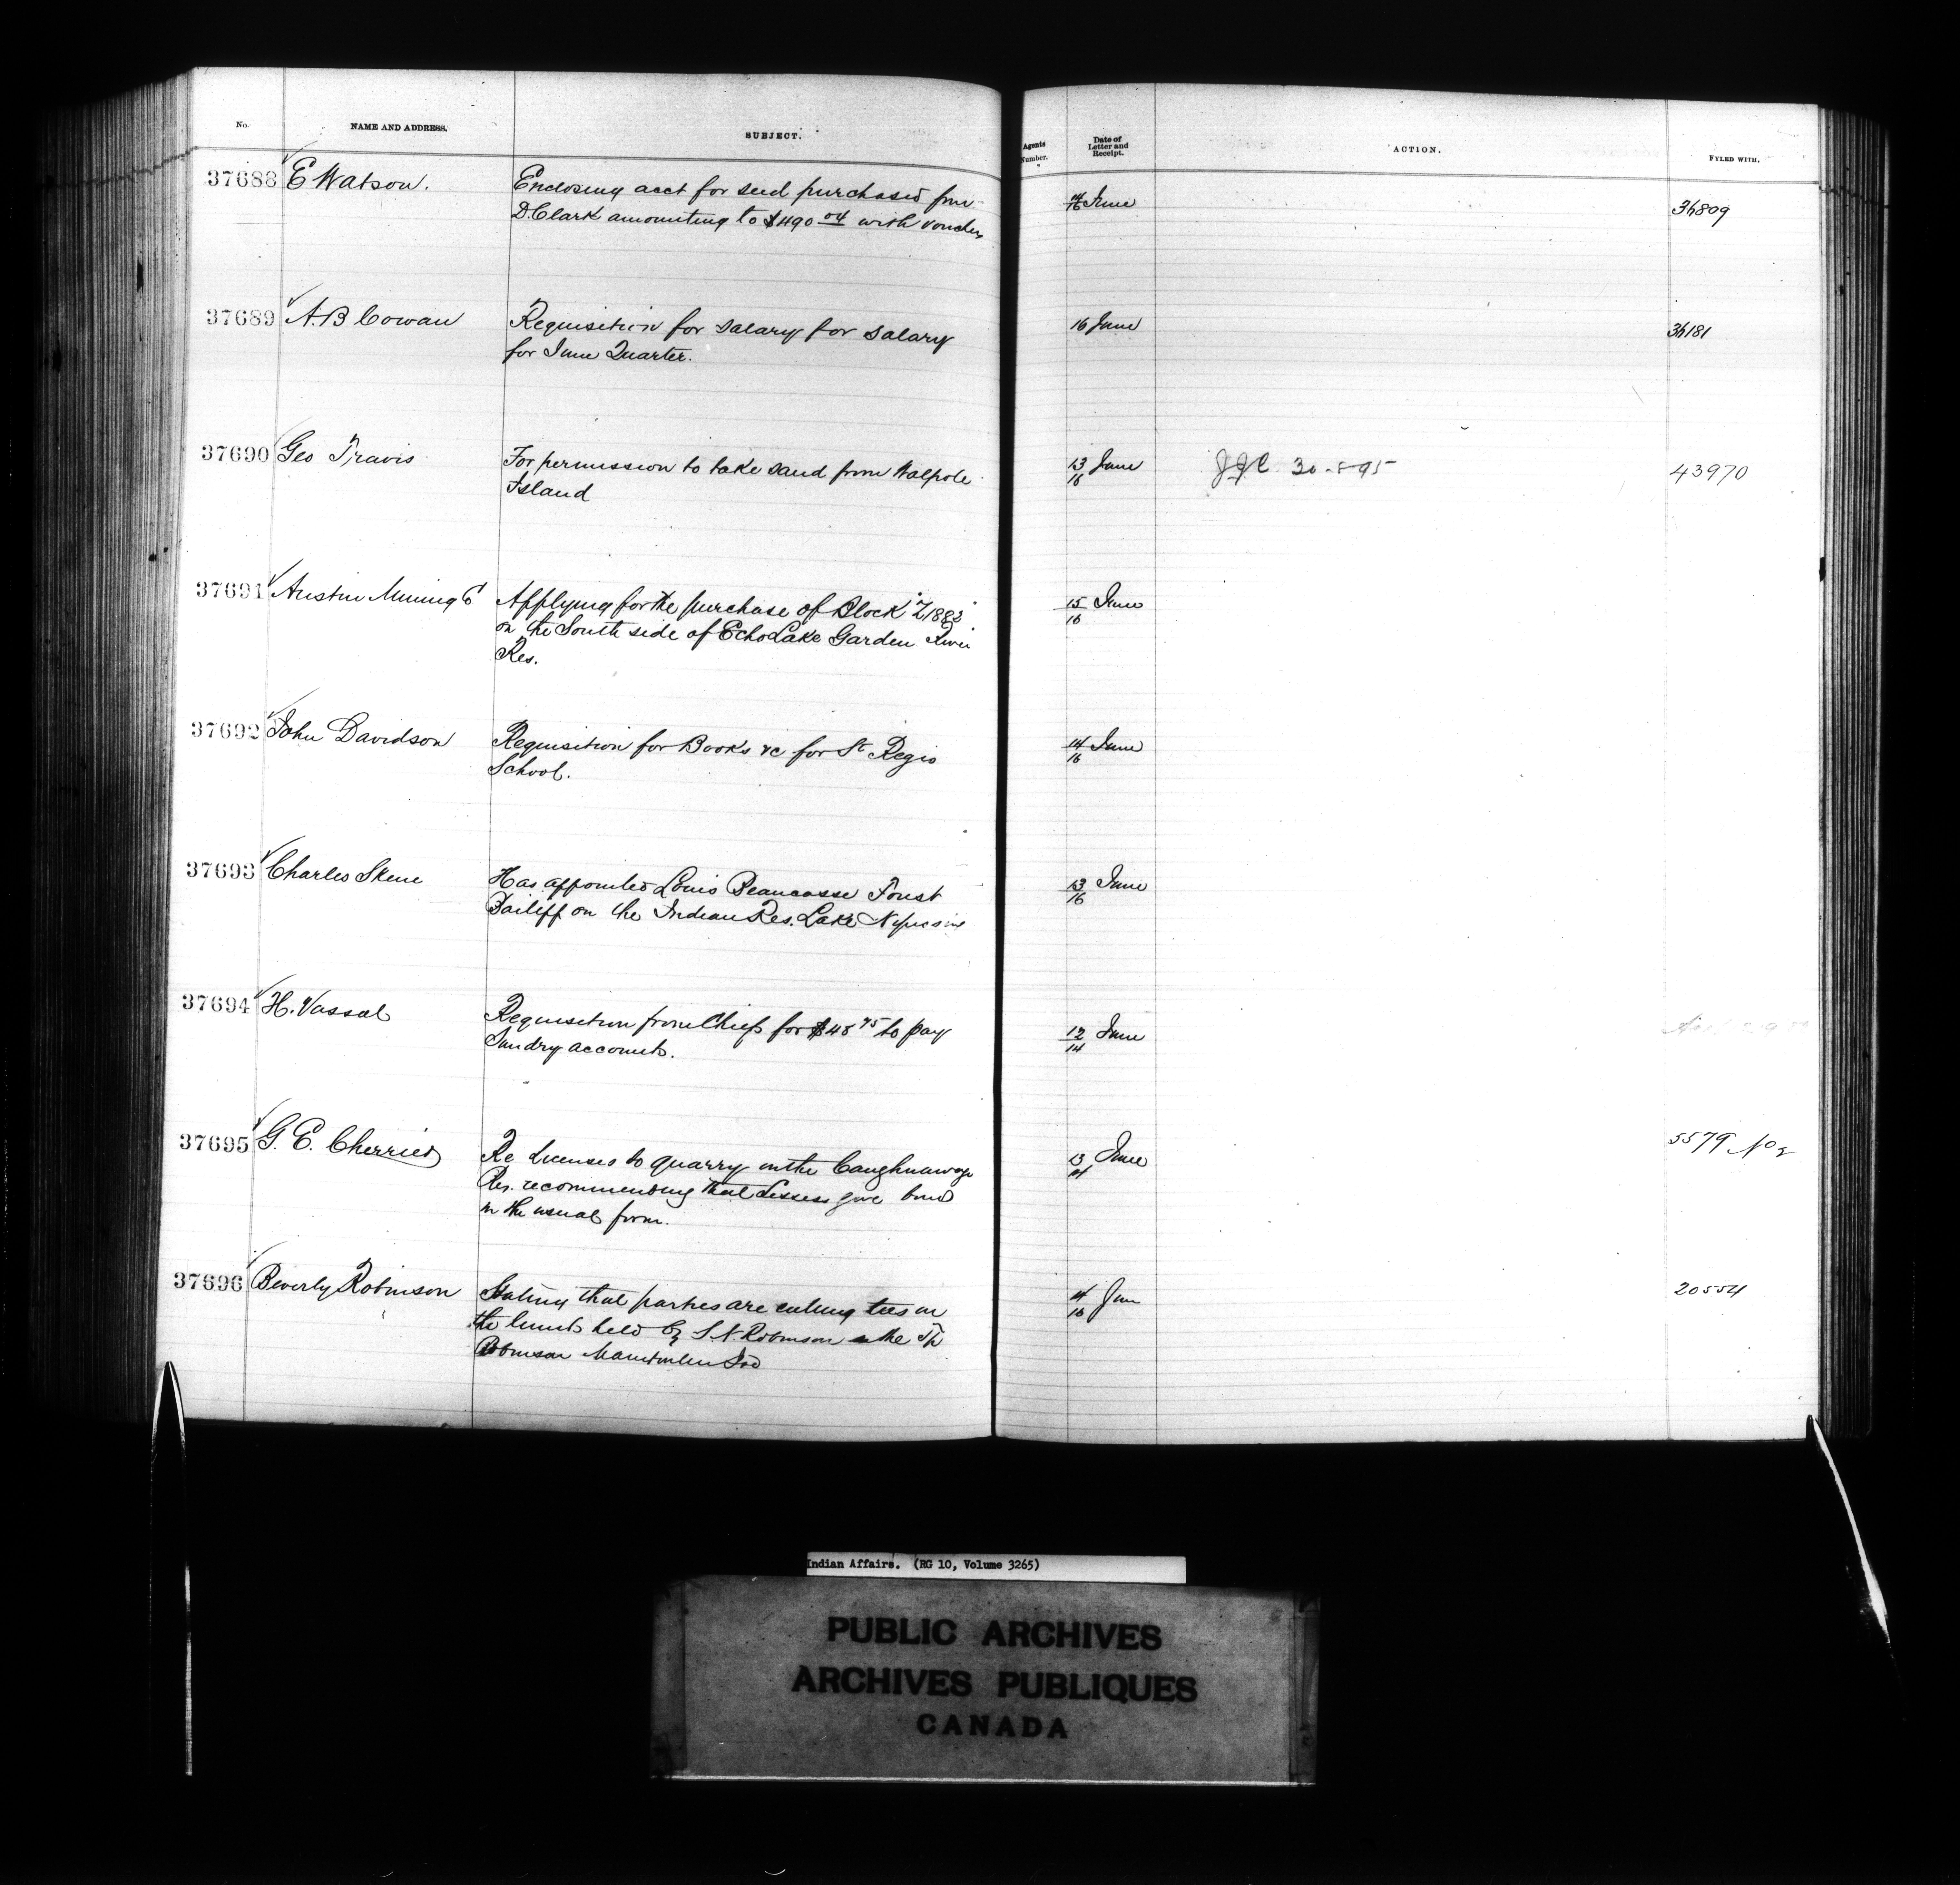 No. NAME AND ADDRESS. SUBJECT. Agents Number. Date of Letter and Receipt. ACTION. FYLED WITH.
37688 E Watson. Enclosing acct for seed purchased from
D. Clark amounting to $490 04 with vouchers
14/16 June 36809
37689 A.B Cowan Requisition for salary for salary
for June Quarter.
16 June 36181
37690 Geo Travis For permission to take sand from Walpole
Island
13/16 June 43970
37691 Austin Mining Co Applying for the purchase of Block "Z 1882"
on the South side of Echo Lake Garden River
Res.
15/16 June
37692 John Davidson Requisition for Books &c for St Regis
School.
14/16 June
37693 Charles Skene Has appointed Louis Beaucasse Forest
Bailiff on the Indian Res. Lake Nipissing
13/16 June
37694 H. Vassal Requisition from Chiefs for $48 75 to pay
Sundry accounts.
12/14 June
37695 G. E. Cherrier Re Licenses to quarry on the Caughnawaga
Res. recommending that Lessees give bond
in the usual form.
13/14 June 5579 No 2
37696 Beverly Robinson Stating that parties are cutting ties on
the limits held by S. N. Robinson in the Tp
Robinson Manitoulin Isd
14/16 June 20554
Indian Affairs. (RG 10, Volume 3265)
PUBLIC ARCHIVES
ARCHIVES PUBLIQUES
CANADA